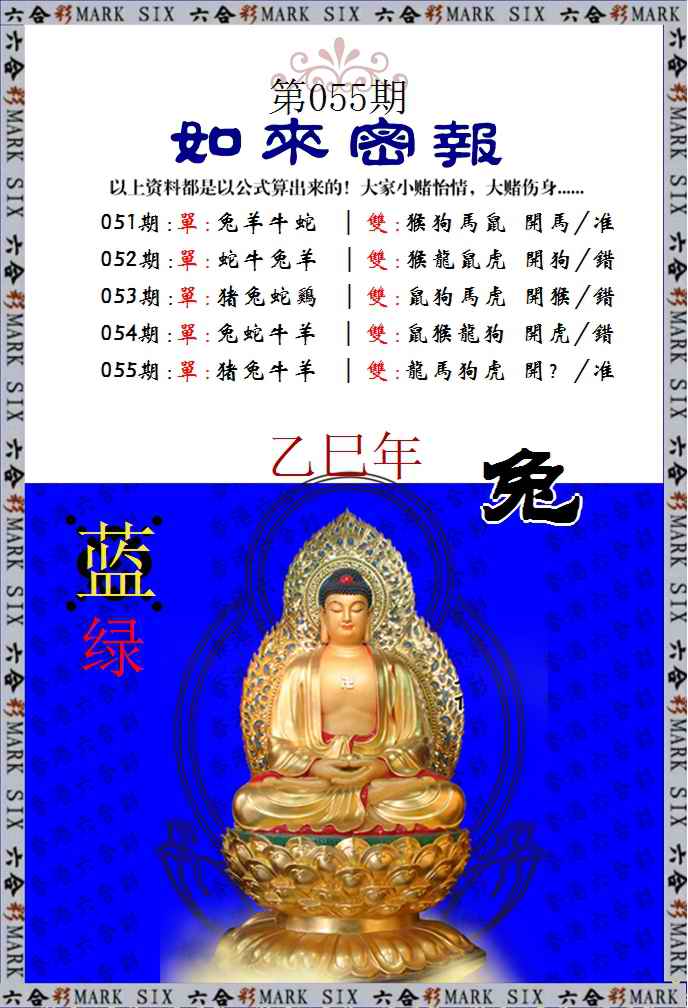 六合彩MARK SIX 六合彩MARK SIX 六合彩MARK SIX 六合彩MARK SIX
第055期
如來密報
以上资料都是以公式算出来的！大家小赌怡情，大赌伤身......
051期:單:兔羊牛蛇 | 雙:猴狗馬鼠 開馬/准
052期:單:蛇牛兔羊 | 雙:猴龍鼠虎 開狗/錯
053期:單:猪兔蛇鷄 | 雙:鼠狗馬虎 開猴/錯
054期:單:兔蛇牛羊 | 雙:鼠猴龍狗 開虎/錯
055期:單:猪兔牛羊 | 雙:龍馬狗虎 開? /准
乙巳年
兔
蓝
绿
六合彩MARK SIX 六合彩MARK SIX 六合彩MARK SIX 六合彩MARK SIX